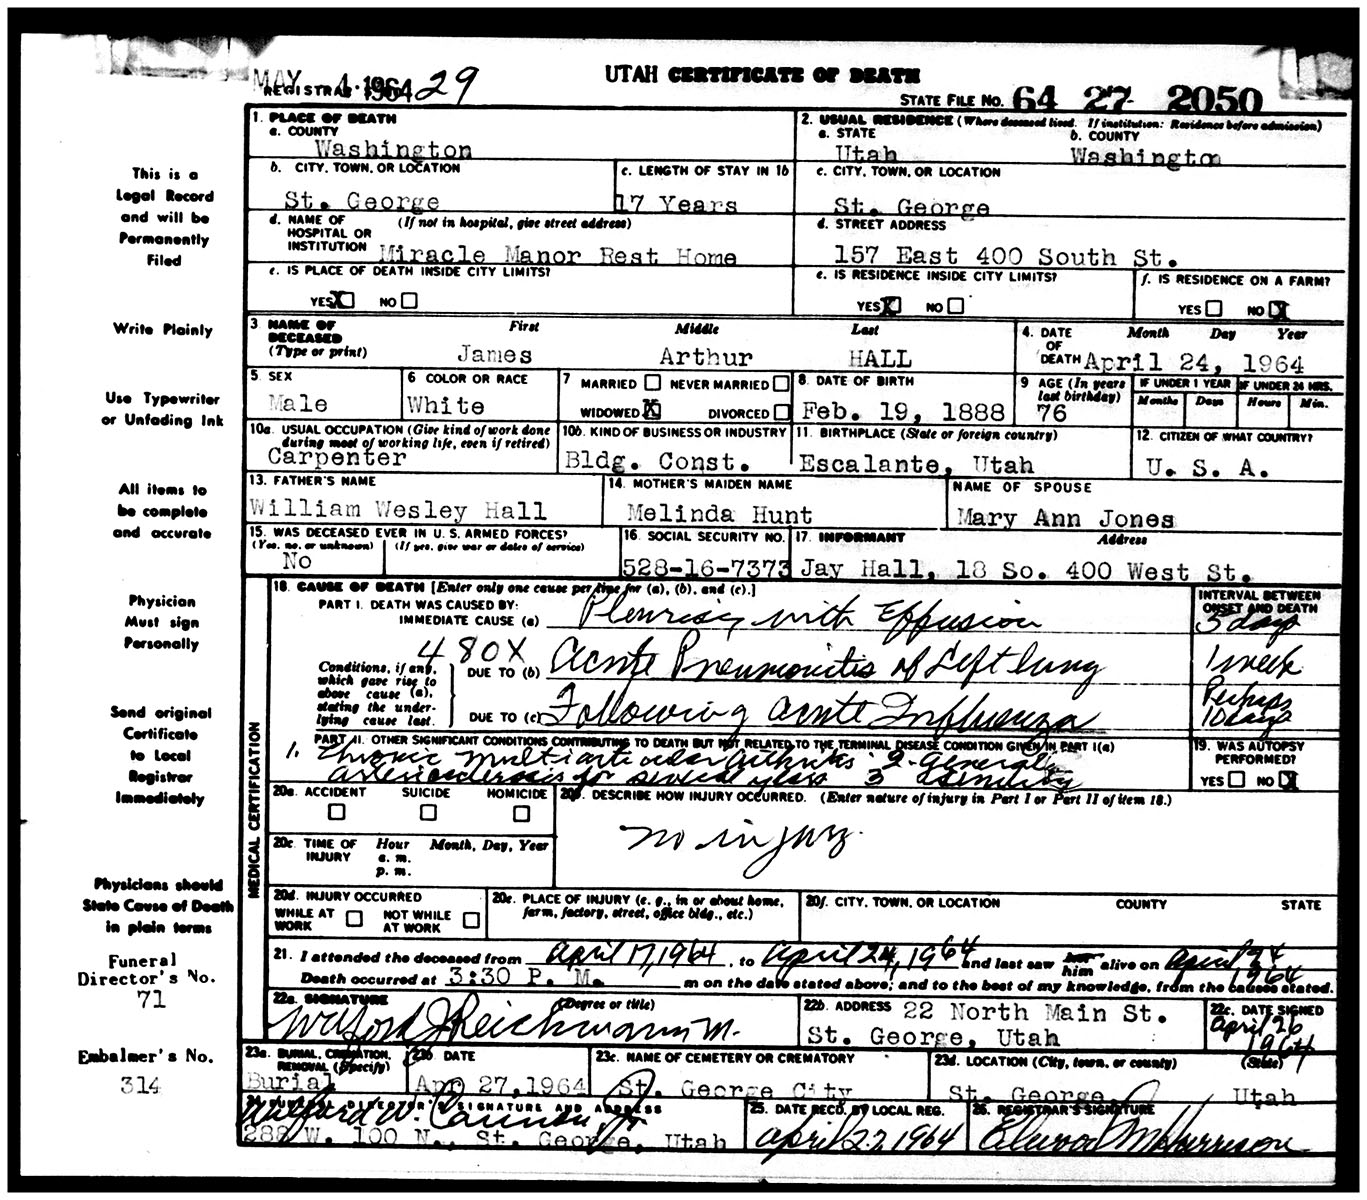 MAY 4 1964 29 UTAH CERTIFICATE OF DEATH
REGISTRAR'S STATE FILE NO. 64 27 2050
1. PLACE OF DEATH 2. USUAL RESIDENCE (Where deceased lived. If institution: Residence before admission)
a. COUNTY a. STATE b. COUNTY
Washington Utah Washington
b. CITY, TOWN, OR LOCATION c. LENGTH OF STAY IN 1b c. CITY, TOWN, OR LOCATION
St. George 17 Years St. George
d. NAME OF HOSPITAL OR INSTITUTION (If not in hospital, give street address) d. STREET ADDRESS
Miracle Manor Rest Home 157 East 400 South St.
e. IS PLACE OF DEATH INSIDE CITY LIMITS? e. IS RESIDENCE INSIDE CITY LIMITS? f. IS RESIDENCE ON A FARM?
YES X NO YES X NO YES NO X
3. NAME OF DECEASED (Type or print) First Middle Last 4. DATE OF DEATH Month Day Year
James Arthur HALL April 24, 1964
5. SEX 6 COLOR OR RACE 7 MARRIED NEVER MARRIED 8. DATE OF BIRTH 9 AGE (In years last birthday) IF UNDER 1 YEAR IF UNDER 24 HRS.
WIDOWED X DIVORCED Months Days Hours Min.
Male White Feb. 19, 1888 76
10a. USUAL OCCUPATION (Give kind of work done during most of working life, even if retired) 10b. KIND OF BUSINESS OR INDUSTRY 11. BIRTHPLACE (State or foreign country) 12. CITIZEN OF WHAT COUNTRY?
Carpenter Bldg. Const. Escalante, Utah U. S. A.
13. FATHER'S NAME 14. MOTHER'S MAIDEN NAME NAME OF SPOUSE
William Wesley Hall Melinda Hunt Mary Ann Jones
15. WAS DECEASED EVER IN U. S. ARMED FORCES? 16. SOCIAL SECURITY NO. 17. INFORMANT Address
(Yes, no, or unknown) (If yes, give war or dates of service)
No 528-16-7373 Jay Hall, 18 So. 400 West St.
18. CAUSE OF DEATH [Enter only one cause per line for (a), (b), and (c).] INTERVAL BETWEEN ONSET AND DEATH
PART I. DEATH WAS CAUSED BY:
IMMEDIATE CAUSE (a) Pleurisy with Effusion days
480X
Conditions, if any, which gave rise to above cause (a), stating the underlying cause last.
DUE TO (b) Acute Pneumonitis of Left lung 1 week
DUE TO (c) Following acute Influenza Perhaps 10 days
PART II. OTHER SIGNIFICANT CONDITIONS CONTRIBUTING TO DEATH BUT NOT RELATED TO THE TERMINAL DISEASE CONDITION GIVEN IN PART I(a) 19. WAS AUTOPSY PERFORMED?
1. Chronic multiarticular arthritis 2- General YES NO X
arteriosclerosis for several years 3 Senility
20a. ACCIDENT SUICIDE HOMICIDE 20b. DESCRIBE HOW INJURY OCCURRED. (Enter nature of injury in Part I or Part II of item 18.)
no injury
20c. TIME OF INJURY Hour a. m. p. m. Month, Day, Year
20d. INJURY OCCURRED 20e. PLACE OF INJURY (e. g., in or about home, farm, factory, street, office bldg., etc.) 20f. CITY, TOWN, OR LOCATION COUNTY STATE
WHILE AT WORK NOT WHILE AT WORK
21. I attended the deceased from April 17, 1964, to April 24, 1964 and last saw her him alive on April 24 1964
Death occurred at 3:30 P. M. m on the date stated above; and to the best of my knowledge, from the causes stated.
22a. SIGNATURE (Degree or title) 22b. ADDRESS 22 North Main St. 22c. DATE SIGNED
Wilford J Reichmann M. St. George, Utah April 26 1964
23a. BURIAL, CREMATION, REMOVAL (Specify) 23b. DATE 23c. NAME OF CEMETERY OR CREMATORY 23d. LOCATION (City, town, or county) (State)
Burial Apr 27, 1964 St. George City St. George, Utah
24. FUNERAL DIRECTOR'S SIGNATURE AND ADDRESS 25. DATE RECD. BY LOCAL REG. 26. REGISTRAR'S SIGNATURE
W. Cannon, Jr. April 27, 1964 Elwood Harrison
288 W. 100 N., St. George, Utah
MEDICAL CERTIFICATION
This is a
Legal Record
and will be
Permanently
Filed
Write Plainly
Use Typewriter
or Unfading Ink
All items to
be complete
and accurate
Physician
Must sign
Personally
Send original
Certificate
to Local
Registrar
Immediately
Physicians should
State Cause of Death
in plain terms
Funeral
Director's No.
71
Embalmer's No.
314